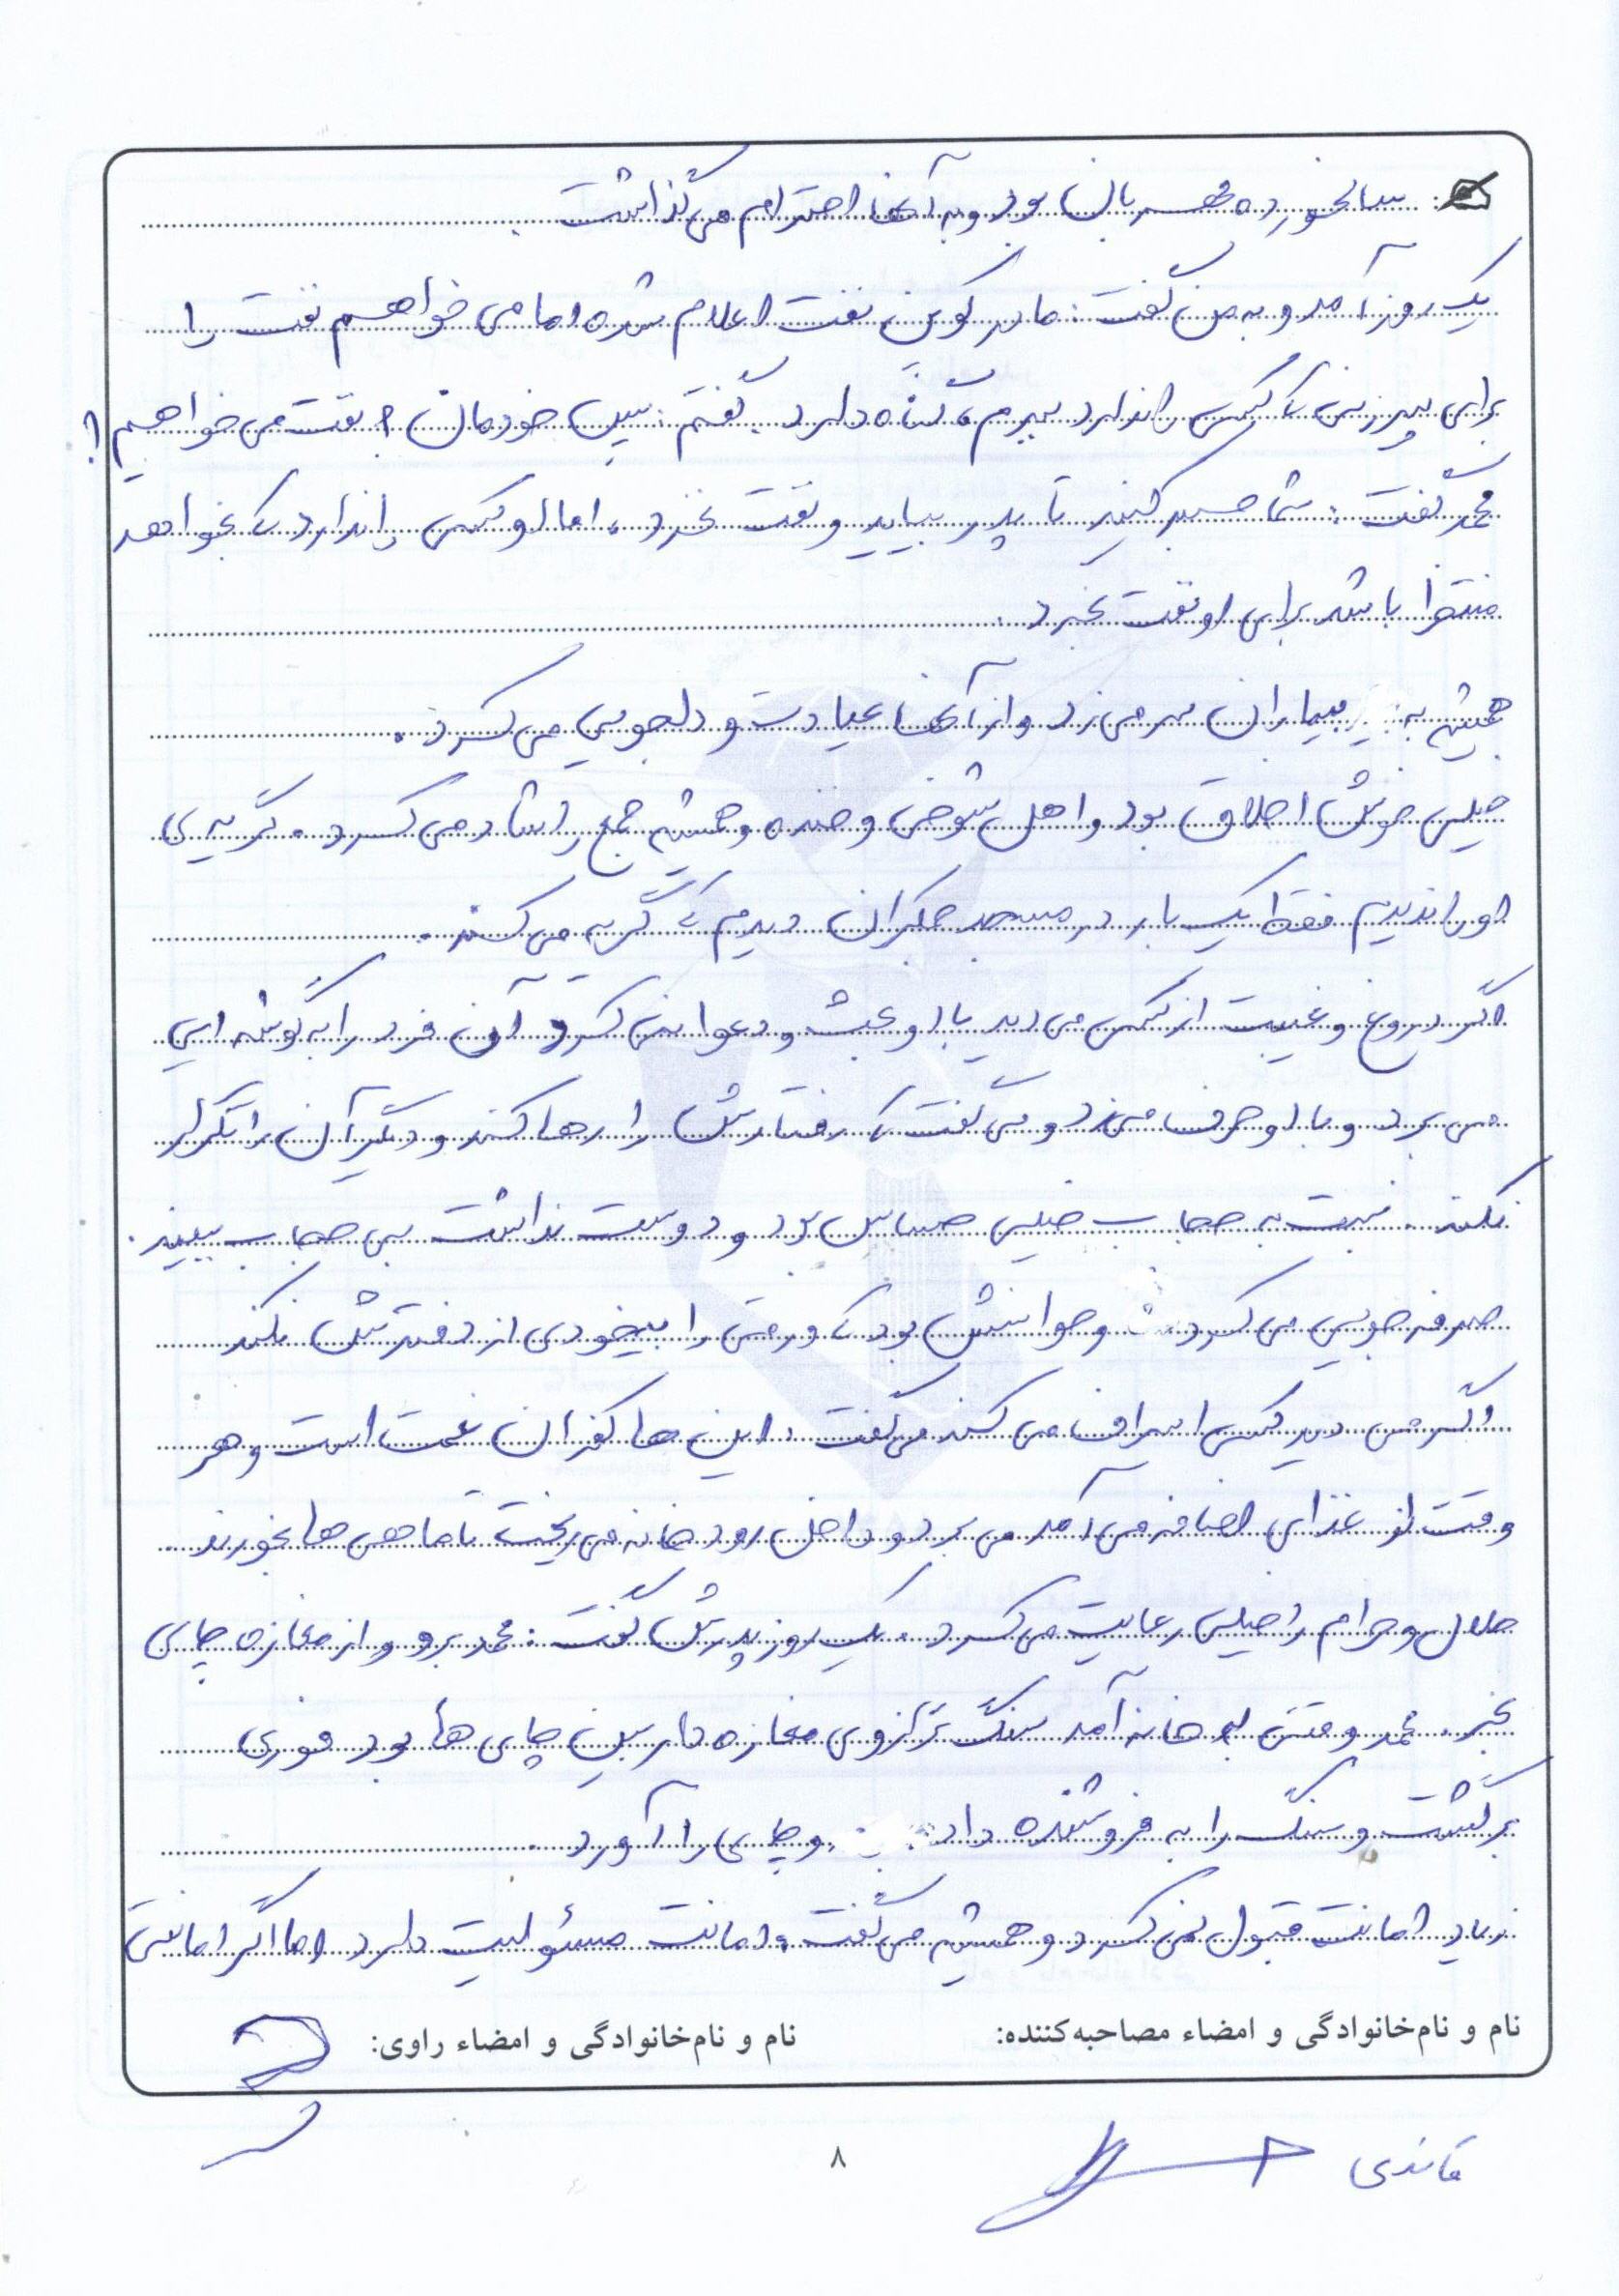 سالخورده مهربان بود و به آنها احترام می گذاشت.
یک روز آمد و به من گفت: مادر کوپن نفت اعلام شده اما می خواهم نفت را
برای پیرزنی که کسی را ندارد ببرم، گناه دارد. گفتم: پس خودمان نفت می خواهیم؟
محمد گفت: شما صبر کنید تا پدر بیاید و نفت بخرد، اما او کسی را ندارد که بخواهد
منتظر باشد برای او نفت بخرد.
همیشه به بیماران سر می زد و از آنها عیادت و دلجویی می کرد.
خیلی خوش اخلاق بود و اهل شوخی و خنده و همیشه جمع را شاد می کرد. گریه ی
او را ندیدم فقط یک بار در مسجد جمکران دیدم که گریه می کند.
اگر دروغ و غیبت از کسی می دید با او بحث و دعوا نمی کرد آن فرد را به گوشه ایی
می برد و با او حرف می زد و می گفت که رفتارش را رها کند و دیگر آن را تکرار
نکند. نسبت به حجاب خیلی حساس بود و دوست نداشت بی حجاب ببیند.
صرفه جویی می کرد و حواسش بود که ورقی را بیخودی از دفترش نکند
و اگر می دید کسی اسراف می کند می گفت: این ها کفران نعمت است و هر
وقت از غذای اضافه می آمد می برد و داخل رودخانه می ریخت تا ماهی ها بخورند.
حلال و حرام را خیلی رعایت می کرد. یک روز پدرش گفت: محمد برو و از مغازه چای
بخر. محمد وقتی به خانه آمد سنگ ترازوی مغازه دار بین چای ها بود فوری
برگشت و سنگ را به فروشنده داد و چای را آورد.
زیاد امانت قبول نمی کرد و همیشه می گفت: امانت مسئولیت دارد اما اگر امانتی
نام و نام‌خانوادگی و امضاء مصاحبه‌کننده: نام و نام‌خانوادگی و امضاء راوی:
قائدی
۸